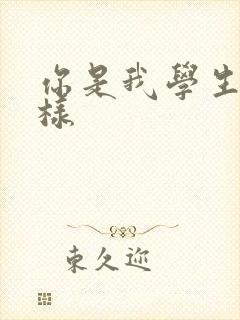 你是我學生
樣
東久迩